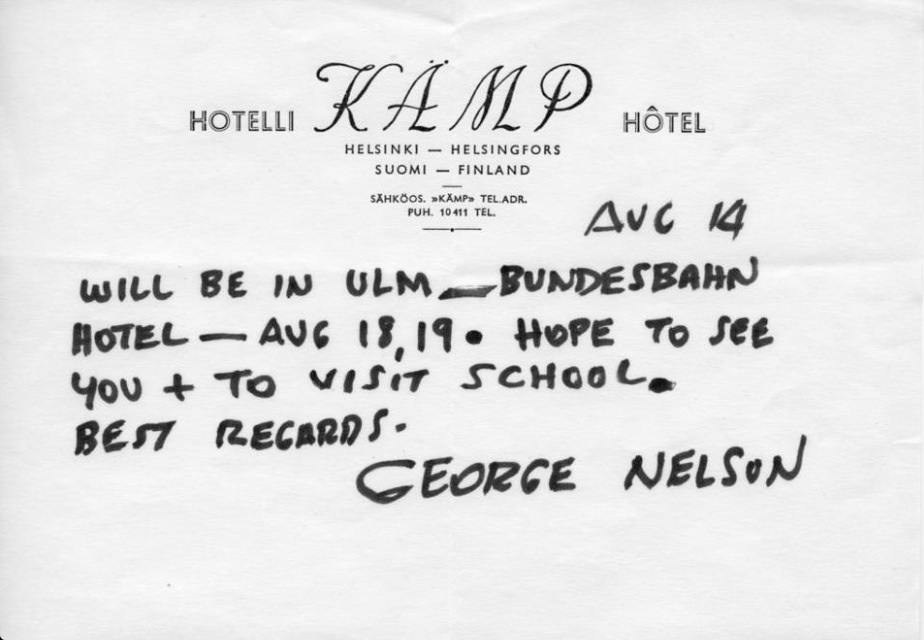 HOTELLI KÄMP HÔTEL
HELSINKI — HELSINGFORS
SUOMI — FINLAND
SÄHKÖOS. »KÄMP» TEL.ADR.
PUH. 10411 TEL.
AUG 14
WILL BE IN ULM — BUNDESBAHN
HOTEL — AUG 18, 19. HOPE TO SEE
YOU + TO VISIT SCHOOL.
BEST REGARDS.
GEORGE NELSON